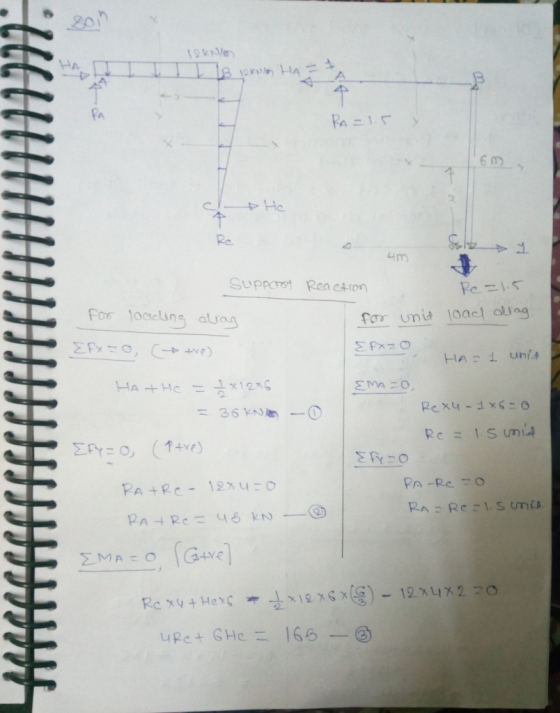 Solⁿ
12kN/m
HA
A
B
12kN/m
RA
x
x
C
Hc
Rc
HA = 1
A
B
RA = 1.5
x
x
6m
C
1
4m
Rc = 1.5
Support Reaction
For loading diag
ΣFx=0, (→ +ve)
HA + Hc = 1/2 x12x6
= 36 KN — ①
ΣFy=0, (↑+ve)
RA + Rc - 12x4=0
RA + Rc = 48 KN — ②
ΣMA = 0, [↺+ve]
Rc x4 + Hcx6 - 1/2 x12 x6 x(6/3) - 12x4x2 = 0
4Rc + 6Hc = 168 — ③
For unit load diag
ΣFx=0,
HA = 1 unit
ΣMA=0,
Rc x4 - 1x6=0
Rc = 1.5 unit
ΣFy=0
RA - Rc = 0
RA = Rc = 1.5 unit